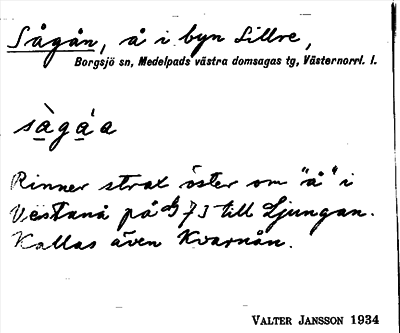 Sågån, å i byn Lillre,
Borgsjö sn, Medelpads västra domsagas tg, Västernorrl. l.
sàgáa
Rinner strax öster om "å" i
Västanå på 73 till Ljungan.
Kallas även Kvarnån.
VALTER JANSSON 1934